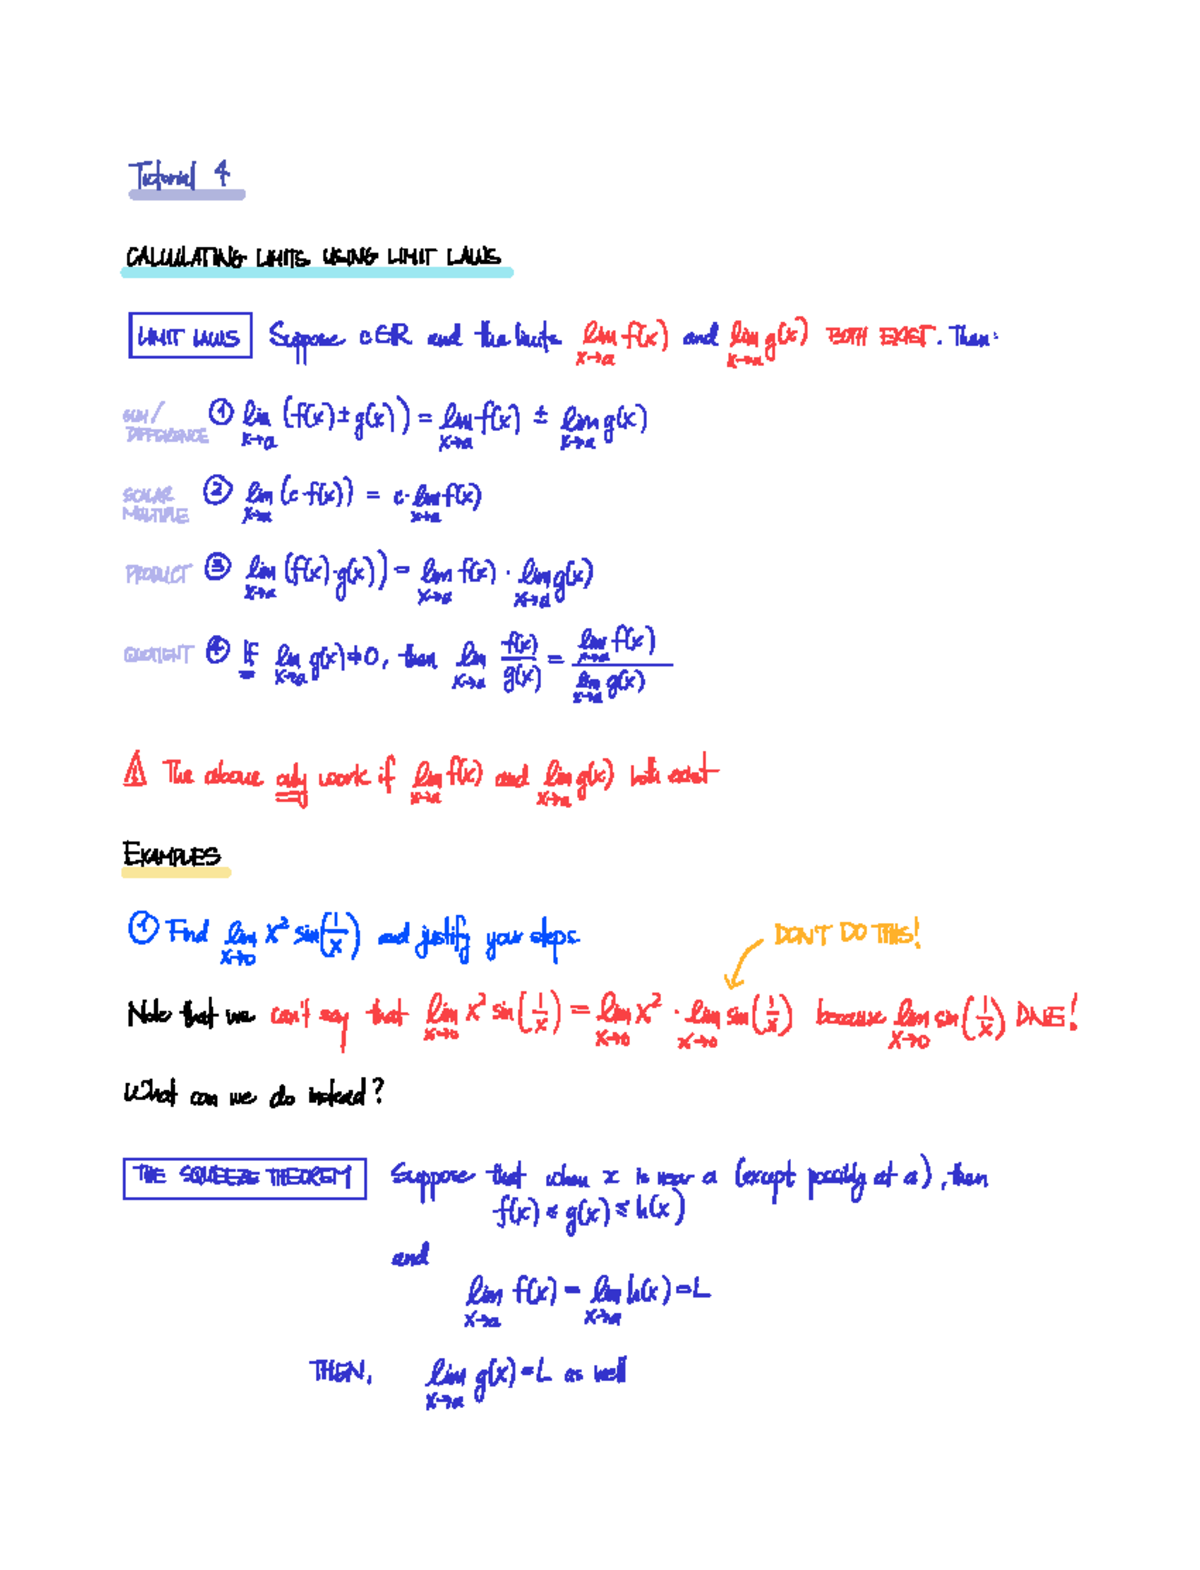 Tutorial 4
CALCULATING LIMITS USING LIMIT LAWS
LIMIT LAWS Suppose c∈ℝ and the limits lim x→a f(x) and lim x→a g(x) BOTH EXIST. Then:
SUM/DIFFERENCE ① lim x→a (f(x) ± g(x)) = lim x→a f(x) ± lim x→a g(x)
SCALAR MULTIPLE ② lim x→a (c·f(x)) = c·lim x→a f(x)
PRODUCT ③ lim x→a (f(x)·g(x)) = lim x→a f(x) · lim x→a g(x)
QUOTIENT ④ If lim x→a g(x) ≠ 0, then lim x→a f(x)/g(x) = lim x→a f(x) / lim x→a g(x)
⚠ The above only work if lim x→a f(x) and lim x→a g(x) both exist
EXAMPLES
① Find lim x→0 x² sin(1/x) and justify your steps.
DON'T DO THIS!
Note that we can't say that lim x→0 x² sin(1/x) = lim x→0 x² · lim x→0 sin(1/x) because lim x→0 sin(1/x) DNE!
What can we do instead?
THE SQUEEZE THEOREM Suppose that when x is near a (except possibly at a), then
f(x) ≤ g(x) ≤ h(x)
and
lim x→a f(x) = lim x→a h(x) = L
THEN, lim x→a g(x) = L as well